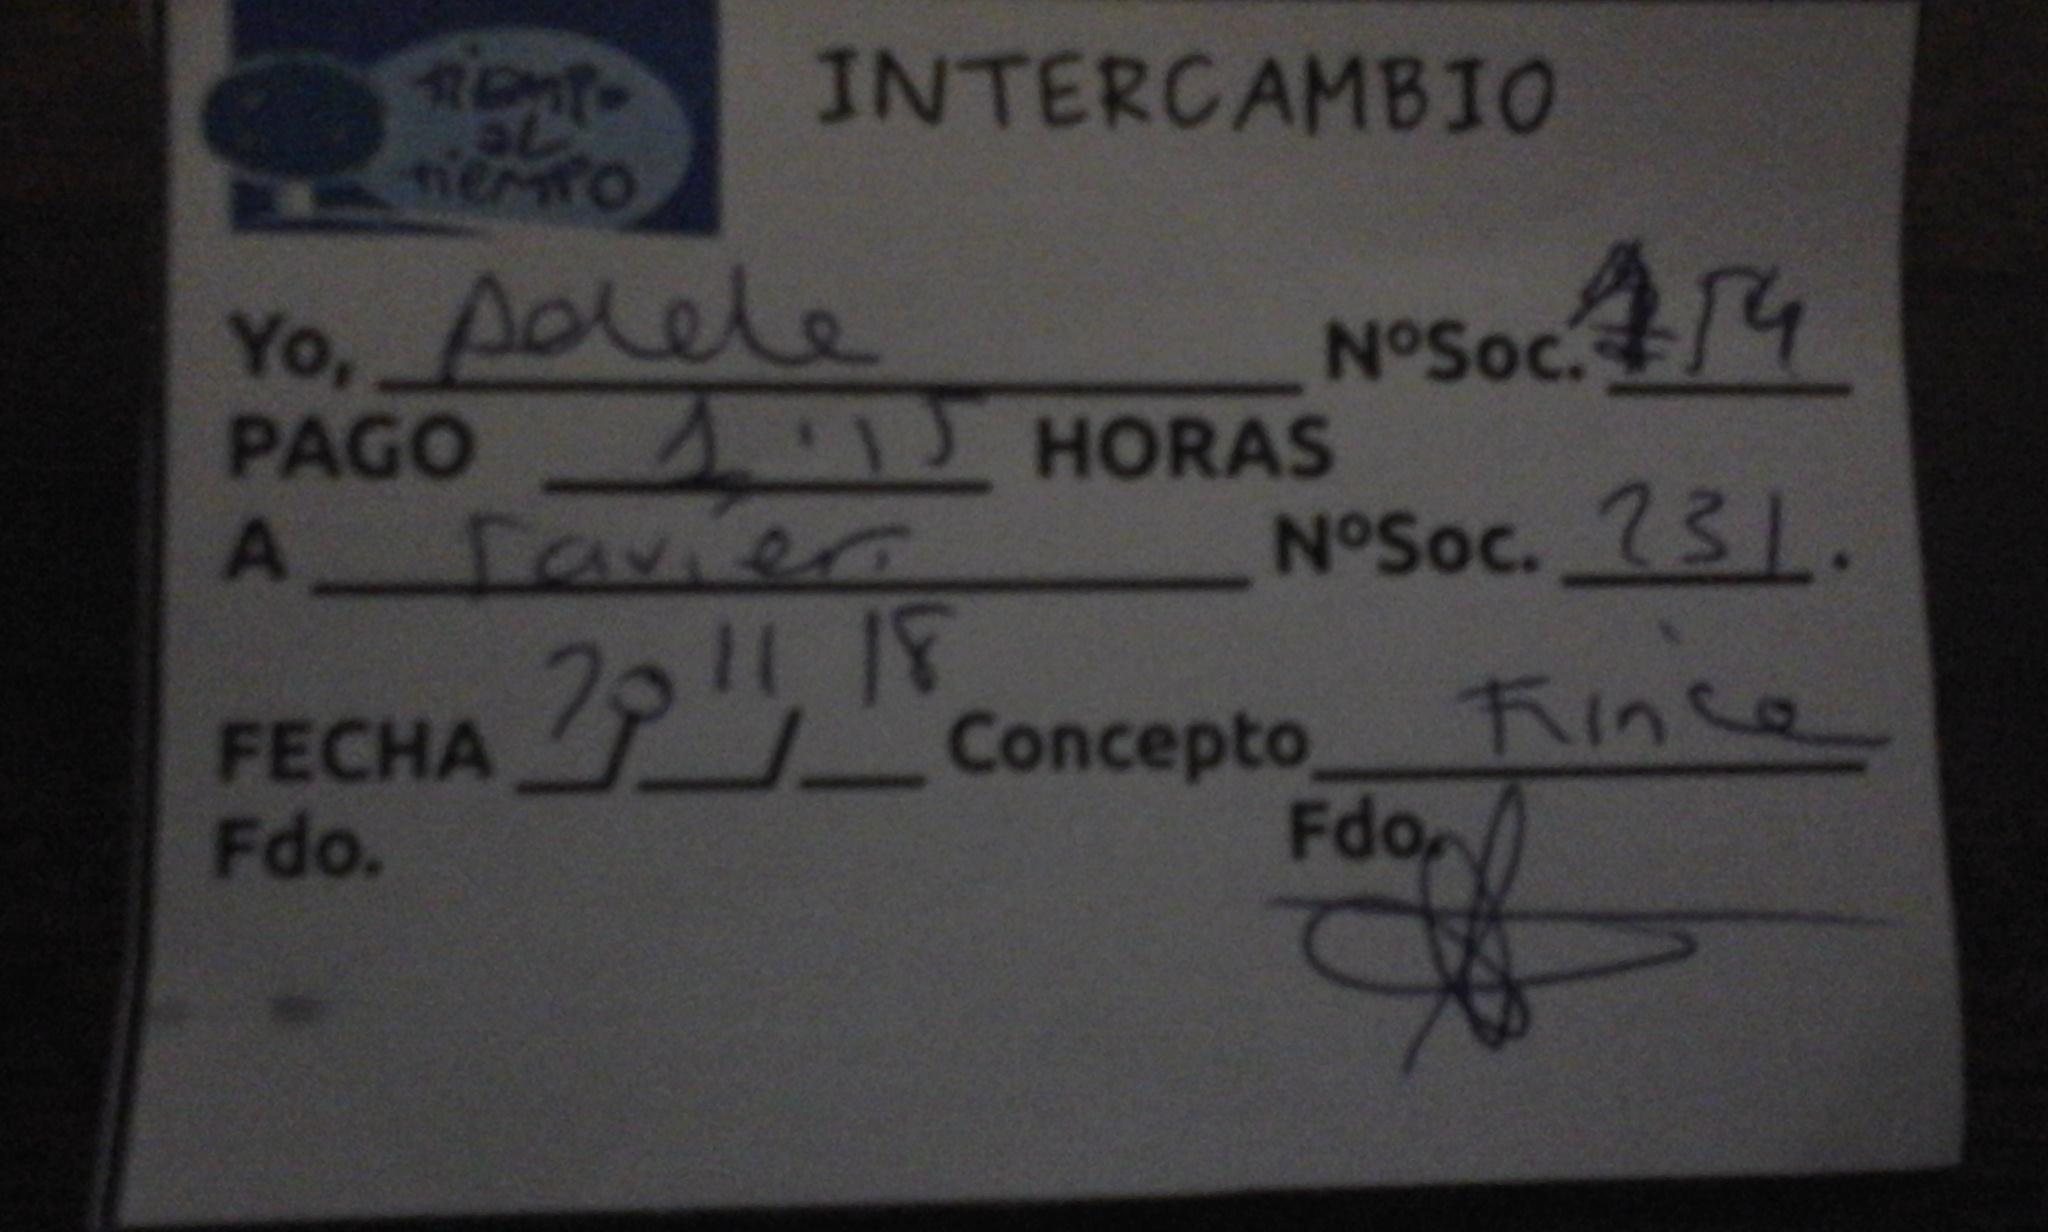 TIEMPO
AL
TIEMPO
INTERCAMBIO
Yo, Adele NºSoc. 154
PAGO 1'15 HORAS
A Javier. NºSoc. 231.
FECHA 20/11/18 Concepto Finca
Fdo. Fdo.